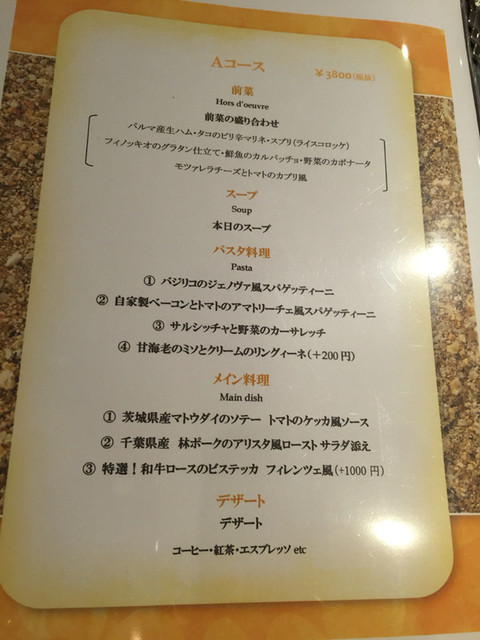 Aコース
¥3800(税抜)
前菜
Hors d'oeuvre
前菜の盛り合わせ
パルマ産生ハム・タコのピリ辛マリネ・スプリ(ライスコロッケ)
フィノッキオのグラタン仕立て・鮮魚のカルパッチョ・野菜のカポナータ
モツァレラチーズとトマトのカプリ風
スープ
Soup
本日のスープ
パスタ料理
Pasta
① バジリコのジェノヴァ風スパゲッティーニ
② 自家製ベーコンとトマトのアマトリーチェ風スパゲッティーニ
③ サルシッチャと野菜のカーサレッチ
④ 甘海老のミソとクリームのリングィーネ(+200円)
メイン料理
Main dish
① 茨城県産マトウダイのソテー トマトのケッカ風ソース
② 千葉県産 林ポークのアリスタ風ロースト サラダ添え
③ 特選!和牛ロースのビステッカ フィレンツェ風(+1000円)
デザート
デザート
コーヒー・紅茶・エスプレッソ etc